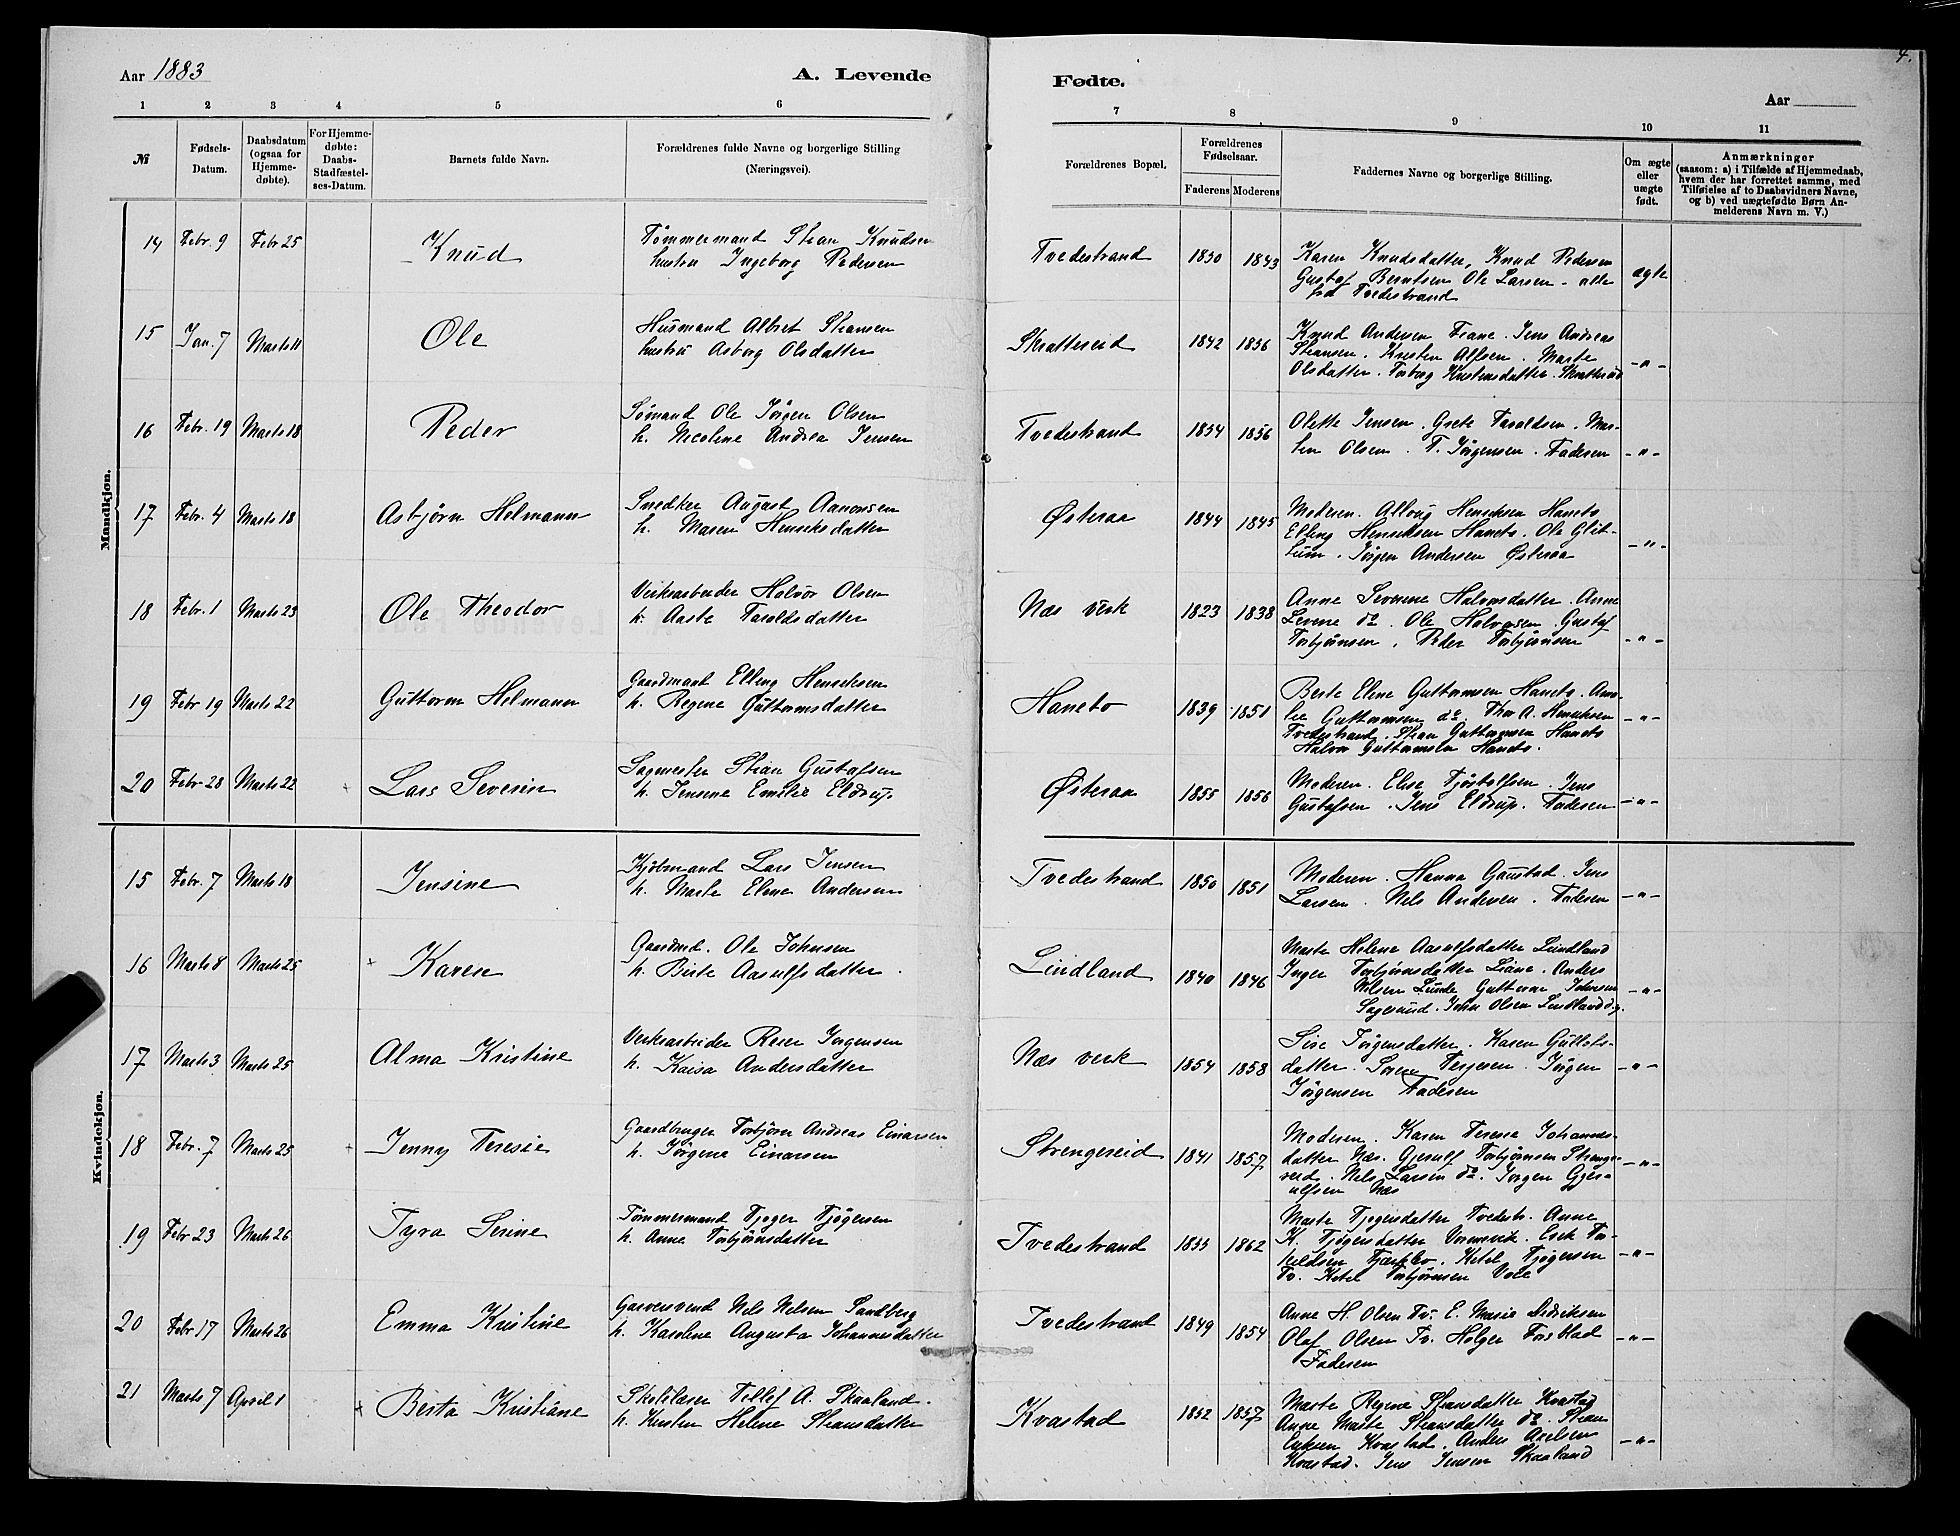 4.
Aar 1883
A. Levende
Fødte.
Aar
1 2 3 4 5 6 7 8 9 10 11
№
Fødsels-
Datum.
Daabsdatum
(ogsaa for
Hjemme-
døbte).
For Hjemme-
døbte:
Daabs-
Stadfæstel-
ses-Datum.
Barnets fulde Navn.
Forældrenes fulde Navne og borgerlige Stilling
(Næringsvei).
Forældrenes Bopæl.
Forældrenes
Fødselsaar.
Faderens Moderens
Faddernes Navne og borgerlige Stilling.
Om ægte
eller
uægte
født.
Anmærkninger
(saasom: a) i Tilfælde af Hjemmedaab,
hvem der har forrettet samme, med
Tilføielse af to Daabsvidners Navne,
og b) ved uægtefødte Børn An-
melderens Navn m. V.)
Mandkjøn.
14 Febr. 9 Febr 25 Knud
Tømmermand Stian Knudsen
hustru Ingeborg Pedersen
Tvedestrand 1850 1843
Karen Knudsdatter, Knud Pedersen
Gustaf Berntsen Ole Larsen - alle
fra Tvedestrand
ægte
15 Jan. 7 Marts 11 Ole
Husmand Albret Stiansen
hustru Asborg Olsdatter
Skrattereid 1842 1856
Knud Andersen Fiane. Jens Andreas
Stiansen. Kristen Alfsen. Marte
Olsdatter. Torborg Kristensdatter. Skattereid
-"-
16 Febr. 19 Marts 18 Peder
Sømand Ole Jörgen Olsen
h. Nicoline Andrea Jensen
Tvedestrand 1854 1856
Olette Jensen. Grete Taraldsen. Mar-
tin Olsen. T. Jörgensen. Faderen
-"-
17 Febr. 4 Marts 18 Asbjørn Helmann
Snedker August Aanonsen
h. Maren Henriksdatter
Østeraa 1844 1845
Moderen. Allaug Henriksen Haneto
Elling Henriksen Haneto. Ole Glit-
tum. Jörgen Andersen Østeraa
-"-
18 Febr. 1 Marts 23 Ole Theodor
Verksarbeider Halvor Olsen
h. Aaste Taraldsdatter
Næs verk 1823 1838
Anne Severine Halvorsdatter. Anne
Levine do. Ole Halvorsen. Gustaf
Torbjörnsen. Peder Torbjörnsen
-"-
19 Febr 19 Marts 22 Guttorm Helmann
Gaardmand Elling Henriksen
h. Regine Guttormsdatter
Haneto 1839 1851
Berte Eline Guttormsen Haneto. Ama-
lie Guttormsen do. Thor A. Henriksen
Tvedestrand. Stian Guttormsen Haneto
Halvor Guttormsen Haneto.
-"-
20 Febr 28 Marts 22 Lars Severin
Sagmester Stian Gustafsen
h. Jensine Emilie Eldrup.
Østeraa 1855 1856
Moderen. Elise Tjöstolfsen. Jens
Gustafsen. Jens Eldrup. Faderen
-"-
Kvindekjøn.
15 Febr. 7 Marts 18 Jensine
Kjöbmand Lars Jensen
h. Marte Elene Andersen
Tvedestrand 1850 1851
Moderen. Hanna Gaustad. Jens
Larsen. Nels Andersen. Faderen
-"-
16 Marts 8 Marts 25 Karen
Gaardmd. Ole Johnsen
h. Birte Aasulfsdatter
Lindland 1840 1846
Marte Helene Aasulfsdatter Lindland
Inger Torbjörnsdatter Liane. Anders
Nilsen Lunde Guttorm Johnsen
Sagesund. John Olsen Lindland
-"-
17 Marts 3 Marts 25 Alma Kristine
Verksarbeider Reier Jörgensen
h. Kaisa Andersdatter
Næs verk 1854 1858
Sise Jörgensdatter. Karen Gullofs-
datter. Sören Terjesen. Jörgen
Jörgensen Faderen
-"-
18 Febr. 7 Marts 25 Jenny Teresie
Gaardbruger Torbjörn Andreas Einarsen
h. Jörgine Einarsen
Strengereid 1841 1857
Moderen. Karen Teresia Johannes-
datter Næs. Gjerulf Torbjörnsen Strenge-
reid. Nils Larsen do. Jörgen Gjer-
ulfsen Næs
-"-
19 Febr 23 Marts 26 Tyra Serine
Tömmermand Tjøger Tjögersen
h. Anne Torbjörnsdatter
Tvedestrand 1855 1862
Marte Tjøgersdatter Tvedestr. Anne
K. Tjögersdatter Vormsvik. Erik Ter-
keldsen Fjærbo. Ketel Tjögersen
Tv. Ketel Torbjörnsen Vole
-"-
20 Febr 17 Marts 26 Emma Kristine
Garversvend Nils Nilsen Sandberg
h. Karoline Augusta Johannsdatter
Tvedestrand 1849 1854
Anne H. Olsen Tv. E. Marie Didriksen
Olaf Olsen Tv. Holger
Faderen
-"-
21 Marts 7 April 1 Berta Kristiane
Skolelærer Tellef A. Skaaland.
h. Kirsten Helene Stiansdatter
Kvastad 1852 1857
Marte Regine Stiansdatter Kvastad
Anne Marte Stiansdatter do. Stian
Eriksen Kvastad. Anders Axelsen
Kvastad. Jens Jensen Skaaland
-"-